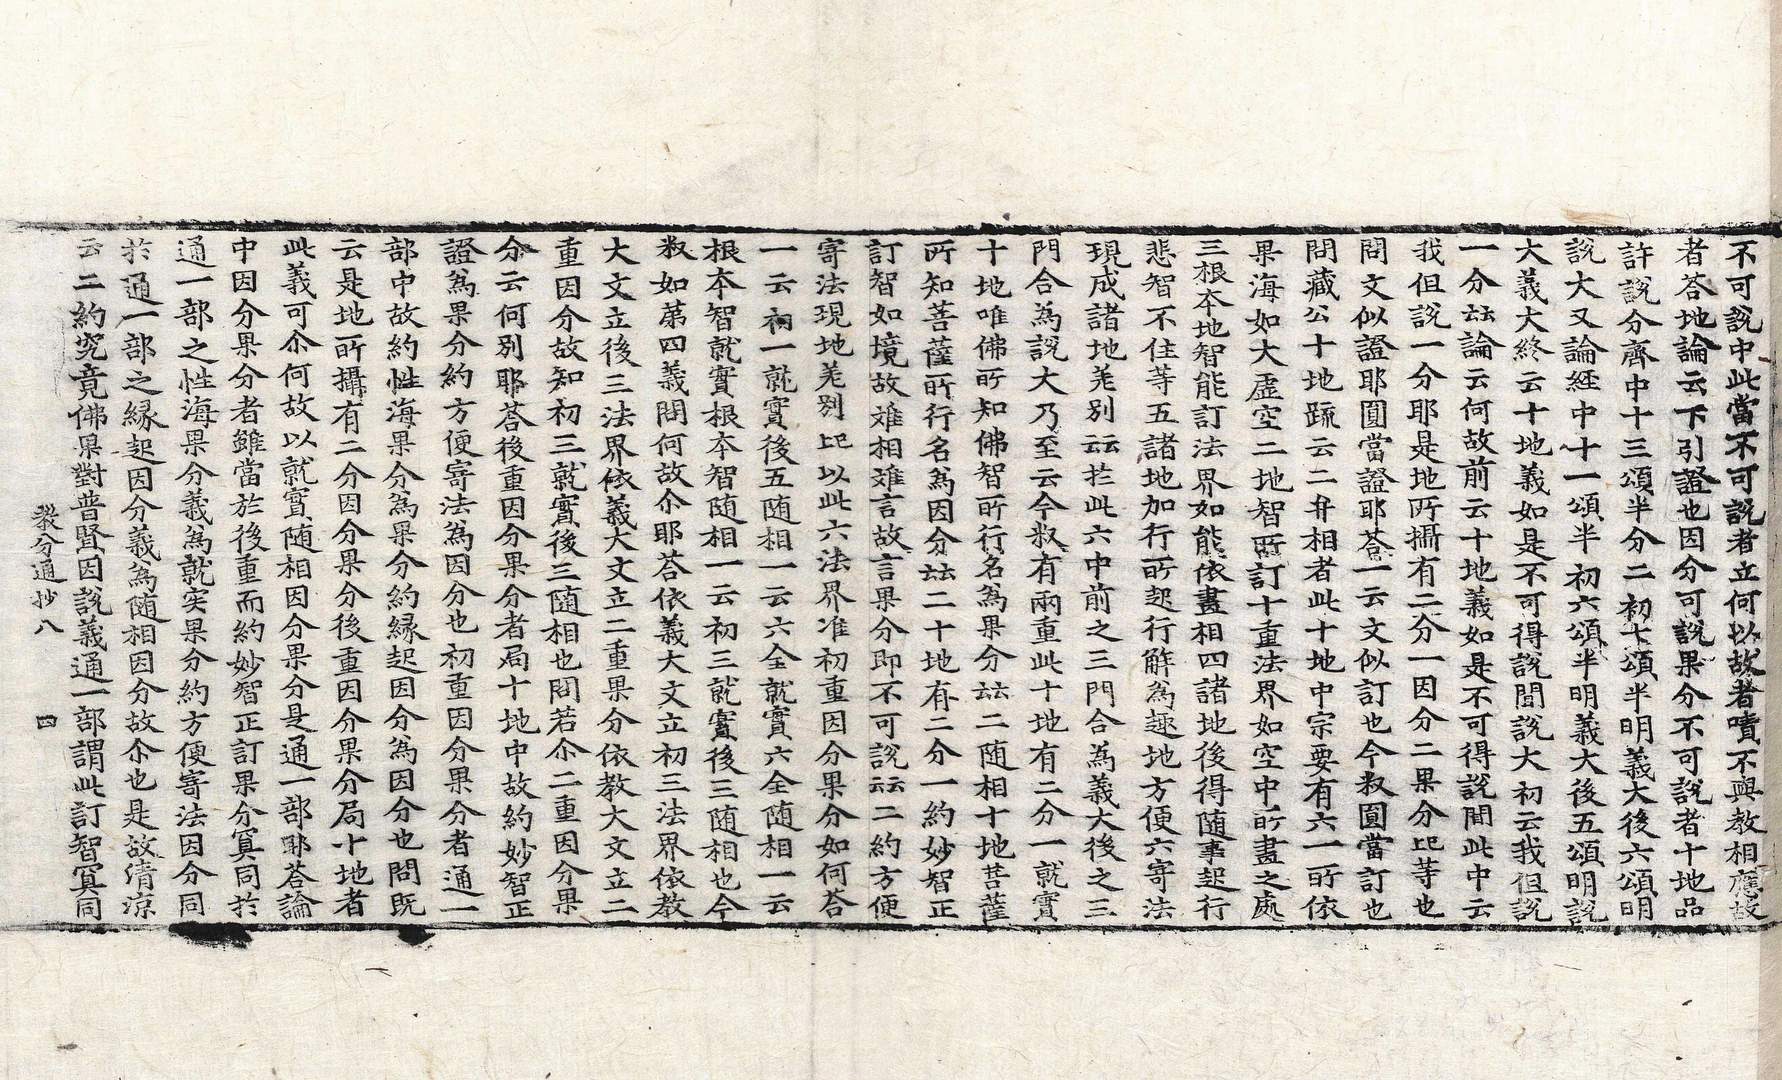 不可說中此當不可說者立何以故者嘖不與教相應故
者答地論云下引證也因分可說果分不可說者十地品
許說分齊中十三頌半分二初七頌半明義大後六頌明
說大又論経中十一頌半初六頌半明義大後五頌明說
大義大終云十地義如是不可得說聞說大初云我但說
一分云云論云何故前云十地義如是不可得說聞此中云
我但說一分耶是地所攝有二分一因分二果分此等也
問文似證耶圎當證耶荅一云文似訂也今叙圎當訂也
問藏公十地䟽云二弁相者此十地中宗要有六一所依
果海如大虛空二地智所訂十重法界如空中所畫之處
三根本地智能訂法界如能依畫相四諸地後得隨事起行
悲智不住等五諸地加行所起行解為趣地方便六寄法
現成諸地差別云云於此六中前之三門合為義大後之三
門合為說大乃至云今叙有兩重此十地有二分一就實
十地唯佛所知佛智所行名為果分云云二随相十地菩薩
所知菩薩所行名為因分云云二十地有二分一約妙智正
訂智如境故难相难言故言果分即不可說云云二約方便
寄法現地差别此以此六法界准初重因分果分如何荅
一云初一就實後五随相一云六全就實六全随相一云
根本智就實根本智随相一云初三就實後三随相也今
叙如苐四義問何故尒耶荅依義大文立初三法界依教
大文立後三法界依義大文立二重果分依教大文立二
重因分故知初三就實後三隨相也問若尒二重因分果
分云何别耶荅後重因分果分者局十地中故約妙智正
證為果分約方便寄法為因分也初重因分果分者通一
部中故約性海果分為果分約縁起因分為因分也問既
云是地所攝有二分因分果分後重因分果分局十地者
此義可尒何故以就實随相因分果分是通一部耶荅論
中因分果分者雖當於後重而約妙智正訂果分冥同於
通一部之性海果分義為就实果分約方便寄法因分同
於通一部之縁起因分義為随相因分故尒也是故清涼
云二約究竟佛果對普賢因説義通一部謂此訂智冥同
教分通抄八　四